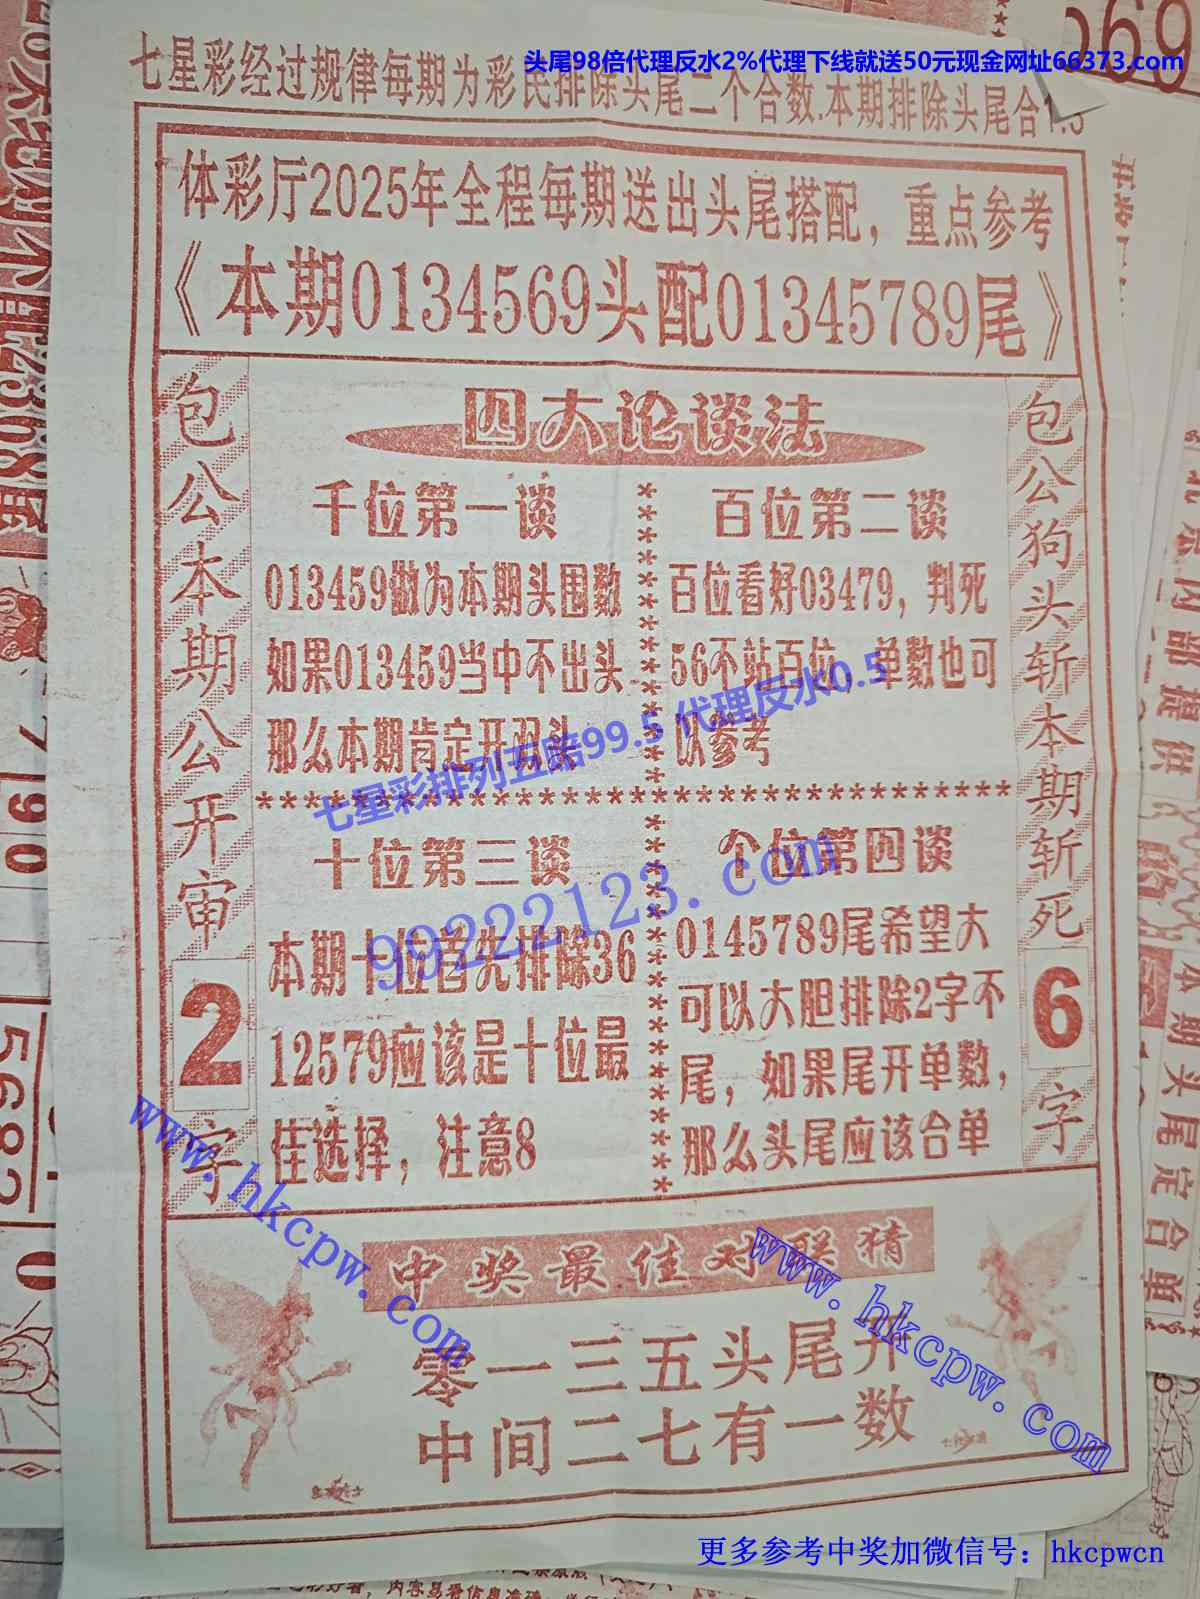 头尾98倍代理反水2%代理下线就送50元现金网址66373.com
七星彩经过规律每期为彩民排除头尾二个合数.本期排除头尾合1.5
体彩厅2025年全程每期送出头尾搭配，重点参考
《本期0134569头配01345789尾》
包公本期公开审2字
四大论谈法
千位第一谈
013459做为本期头围数
如果013459当中不出头
那么本期肯定开双头
百位第二谈
百位看好03479，判死
56不站百位，单数也可
以参考
七星彩排列五赔99.5 代理反水0.5
99222123.com
十位第三谈
本期十位首先排除36
12579应该是十位最
佳选择，注意8
个位第四谈
0145789尾希望大
可以大胆排除2字不
尾，如果尾开单数，
那么头尾应该合单
包公狗头斩本期斩死6字
www.hkcpw.com
中奖最佳对联猜
www.hkcpw.com
零一三五头尾开
中间二七有一数
更多参考中奖加微信号：hkcpwcn
本期头尾定合单
内部提供
790
5682
0
069